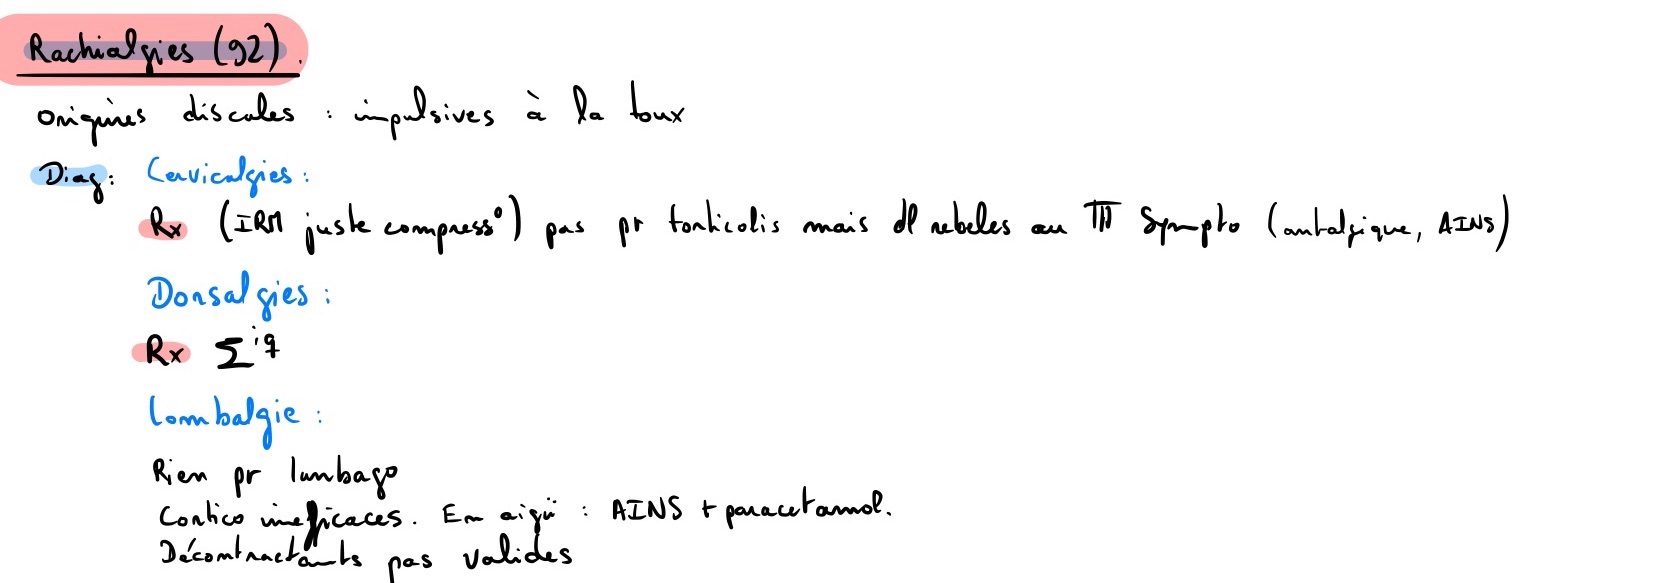 Rachialgies (92).
origines discales : impulsives à la toux
Diag: Cervicalgies :
Rx (IRM juste compress°) pas pr torticolis mais dl rebeles au TTT sympto (antalgique, AINS)
Dorsalgies :
Rx Σiq
Lombalgie :
Rien pr lumbago
Cortico inefficaces. En aigü : AINS + paracetamol.
Décontractants pas valides